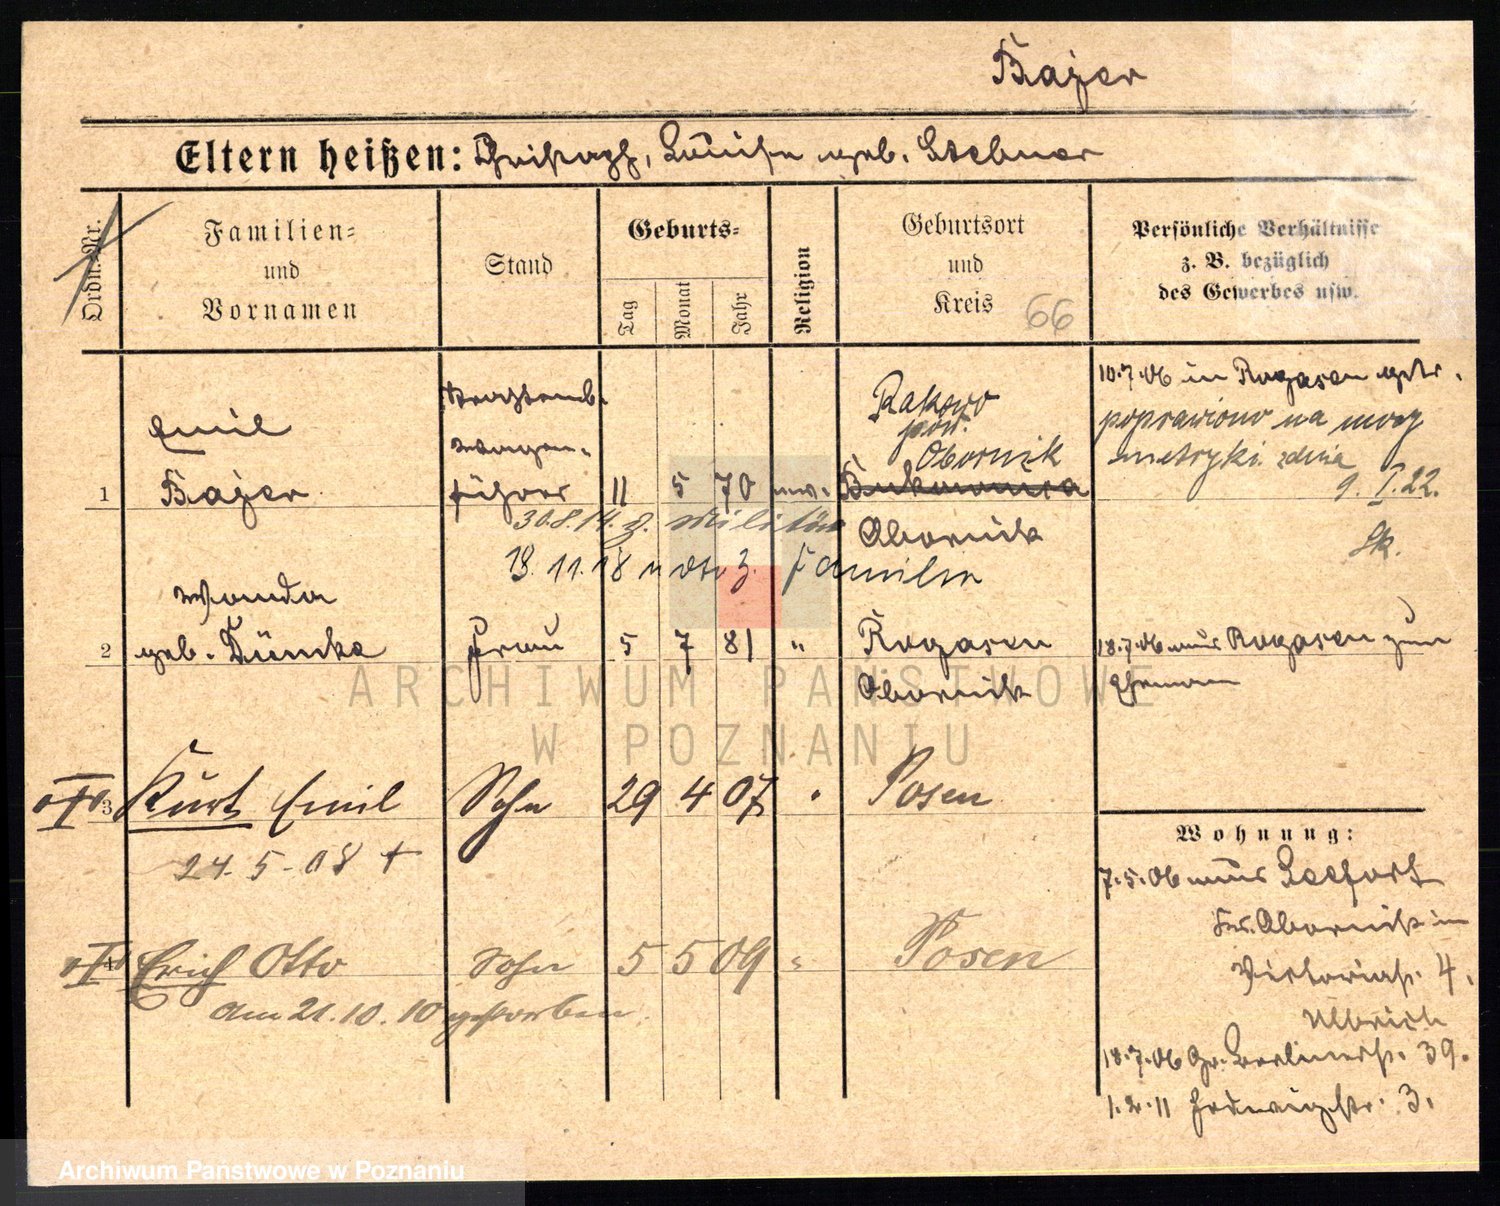 Bajer
Eltern heißen: Christoph, Louise geb. Stebner
Ordn.-Nr.
Familien=
und
Vornamen
Stand
Geburts=
Tag
Monat
Jahr
Religion
Geburtsort
und
Kreis
66
Persönliche Verhältnisse
z. B. bezüglich
des Gewerbes usw.
1
Emil
Bajer
wagen-
führer
11 5 70 ev.
Rakowo
pow.
Obornik
Bukowice
Obornik
10.7.06 in Rogasen getr.
poprawiono na mocy
metryki
9. I. 22.
Sk.
30.8.14. z. Militär
18.11.18 z. Familie
2
Wanda
geb. Dümke
Frau
5 7 81 "
Rogasen
Obornik
18.7.06 aus Rogasen zum
Ehemann
3
Kurt Emil
Sohn
29 4 07 "
Posen
24.5.08 +
4
Erich Otto
Sohn
5 5 09 "
Posen
am 21.10.10 gestorben.
Wohnung:
7.5.06 aus Seefort
Kr. Obornik in
Victoriast. 4.
Ulbrich
18.7.06 Gr. Berlinerst. 39.
1.2.11 Hedwigstr. 3.
ARCHIWUM PAŃSTWOWE
W POZNANIU
Archiwum Państwowe w Poznaniu